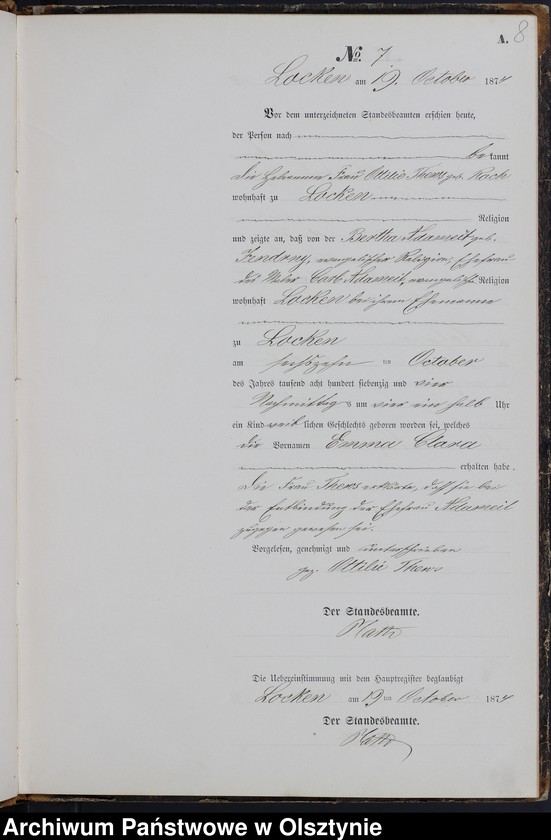 A. 8
No. 7
Locken am 19. October 1874
Vor dem unterzeichneten Standesbeamten erschien heute,
der Person nach
bekannt
die Hebamme Frau Ottilie Thews geb. Rock
wohnhaft zu Locken
Religion
und zeigte an, daß von der Bertha Adameit geb.
evangelischer Religion, Ehefrau
des Maler Carl Adameit, evangelischer Religion
wohnhaft Locken bei ihrem Ehemanne
zu Locken
am sechszehn ten October
des Jahres tausend acht hundert siebenzig und vier
Nachmittag s um vier ein halb Uhr
ein Kind weib lichen Geschlechts geboren worden sei, welches
die Vornamen Emma Clara
erhalten habe.
Die Frau Thews erklärte, daß sie bei
der Entbindung der Ehefrau Adameit
zugegen gewesen sei.
Vorgelesen, genehmigt und unterschrieben
gez. Ottilie Thews
Der Standesbeamte.
Die Uebereinstimmung mit dem Hauptregister beglaubigt
Locken am 19 ten October 1874
Der Standesbeamte.
Archiwum Państwowe w Olsztynie